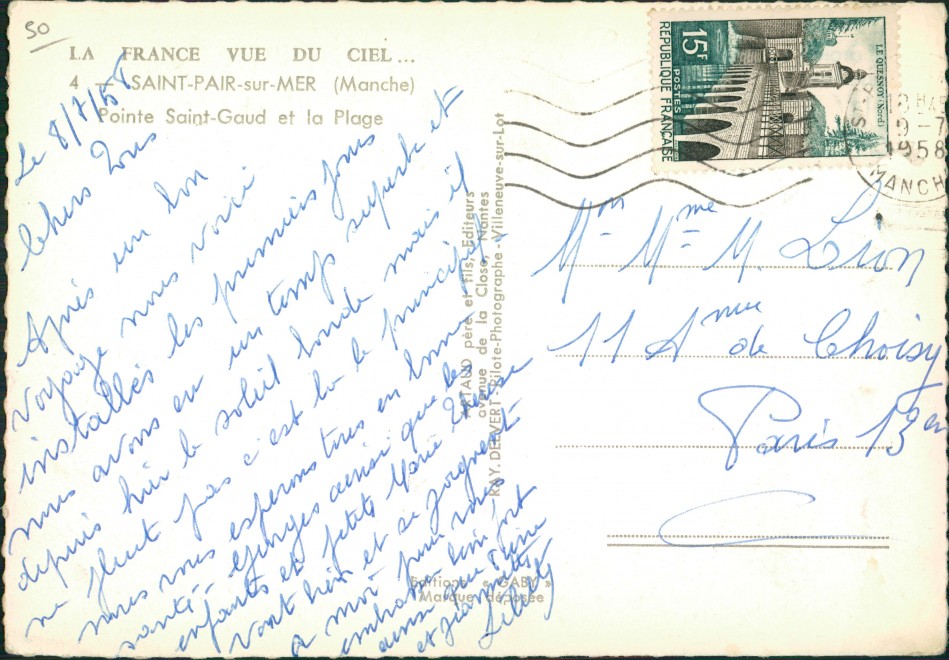 50
LA FRANCE VUE DU CIEL...
4 - SAINT-PAIR-sur-MER (Manche)
Pointe Saint-Gaud et la Plage
Le 8/7/58
Chers Tous
Après un bon
voyage nous voici
installés les premiers jours
nous avons eu un temps superbe et
depuis hier le soleil boude mais il
ne pleut pas c'est là le principal.
nous vous espérons tous en bonne
santé. Georges ainsi que les
enfants et petite Marie Thérèse
vont bien et se joignent
à moi pour vous
embrasser bien fort
ainsi que
et Jeannette
ARTAUD père et fils, Editeurs
avenue de la Close, Nantes
RAY. DELVERT - Pilote-Photographe - Villeneuve-sur-Lot
Editions « GABY »
Marque déposée
15F
REPUBLIQUE FRANÇAISE
POSTES
LE QUESNOY (Nord)
9-7
1958
MANCHE
Mr Mme M. Lion
11 Anue de Choisy
Paris 13en